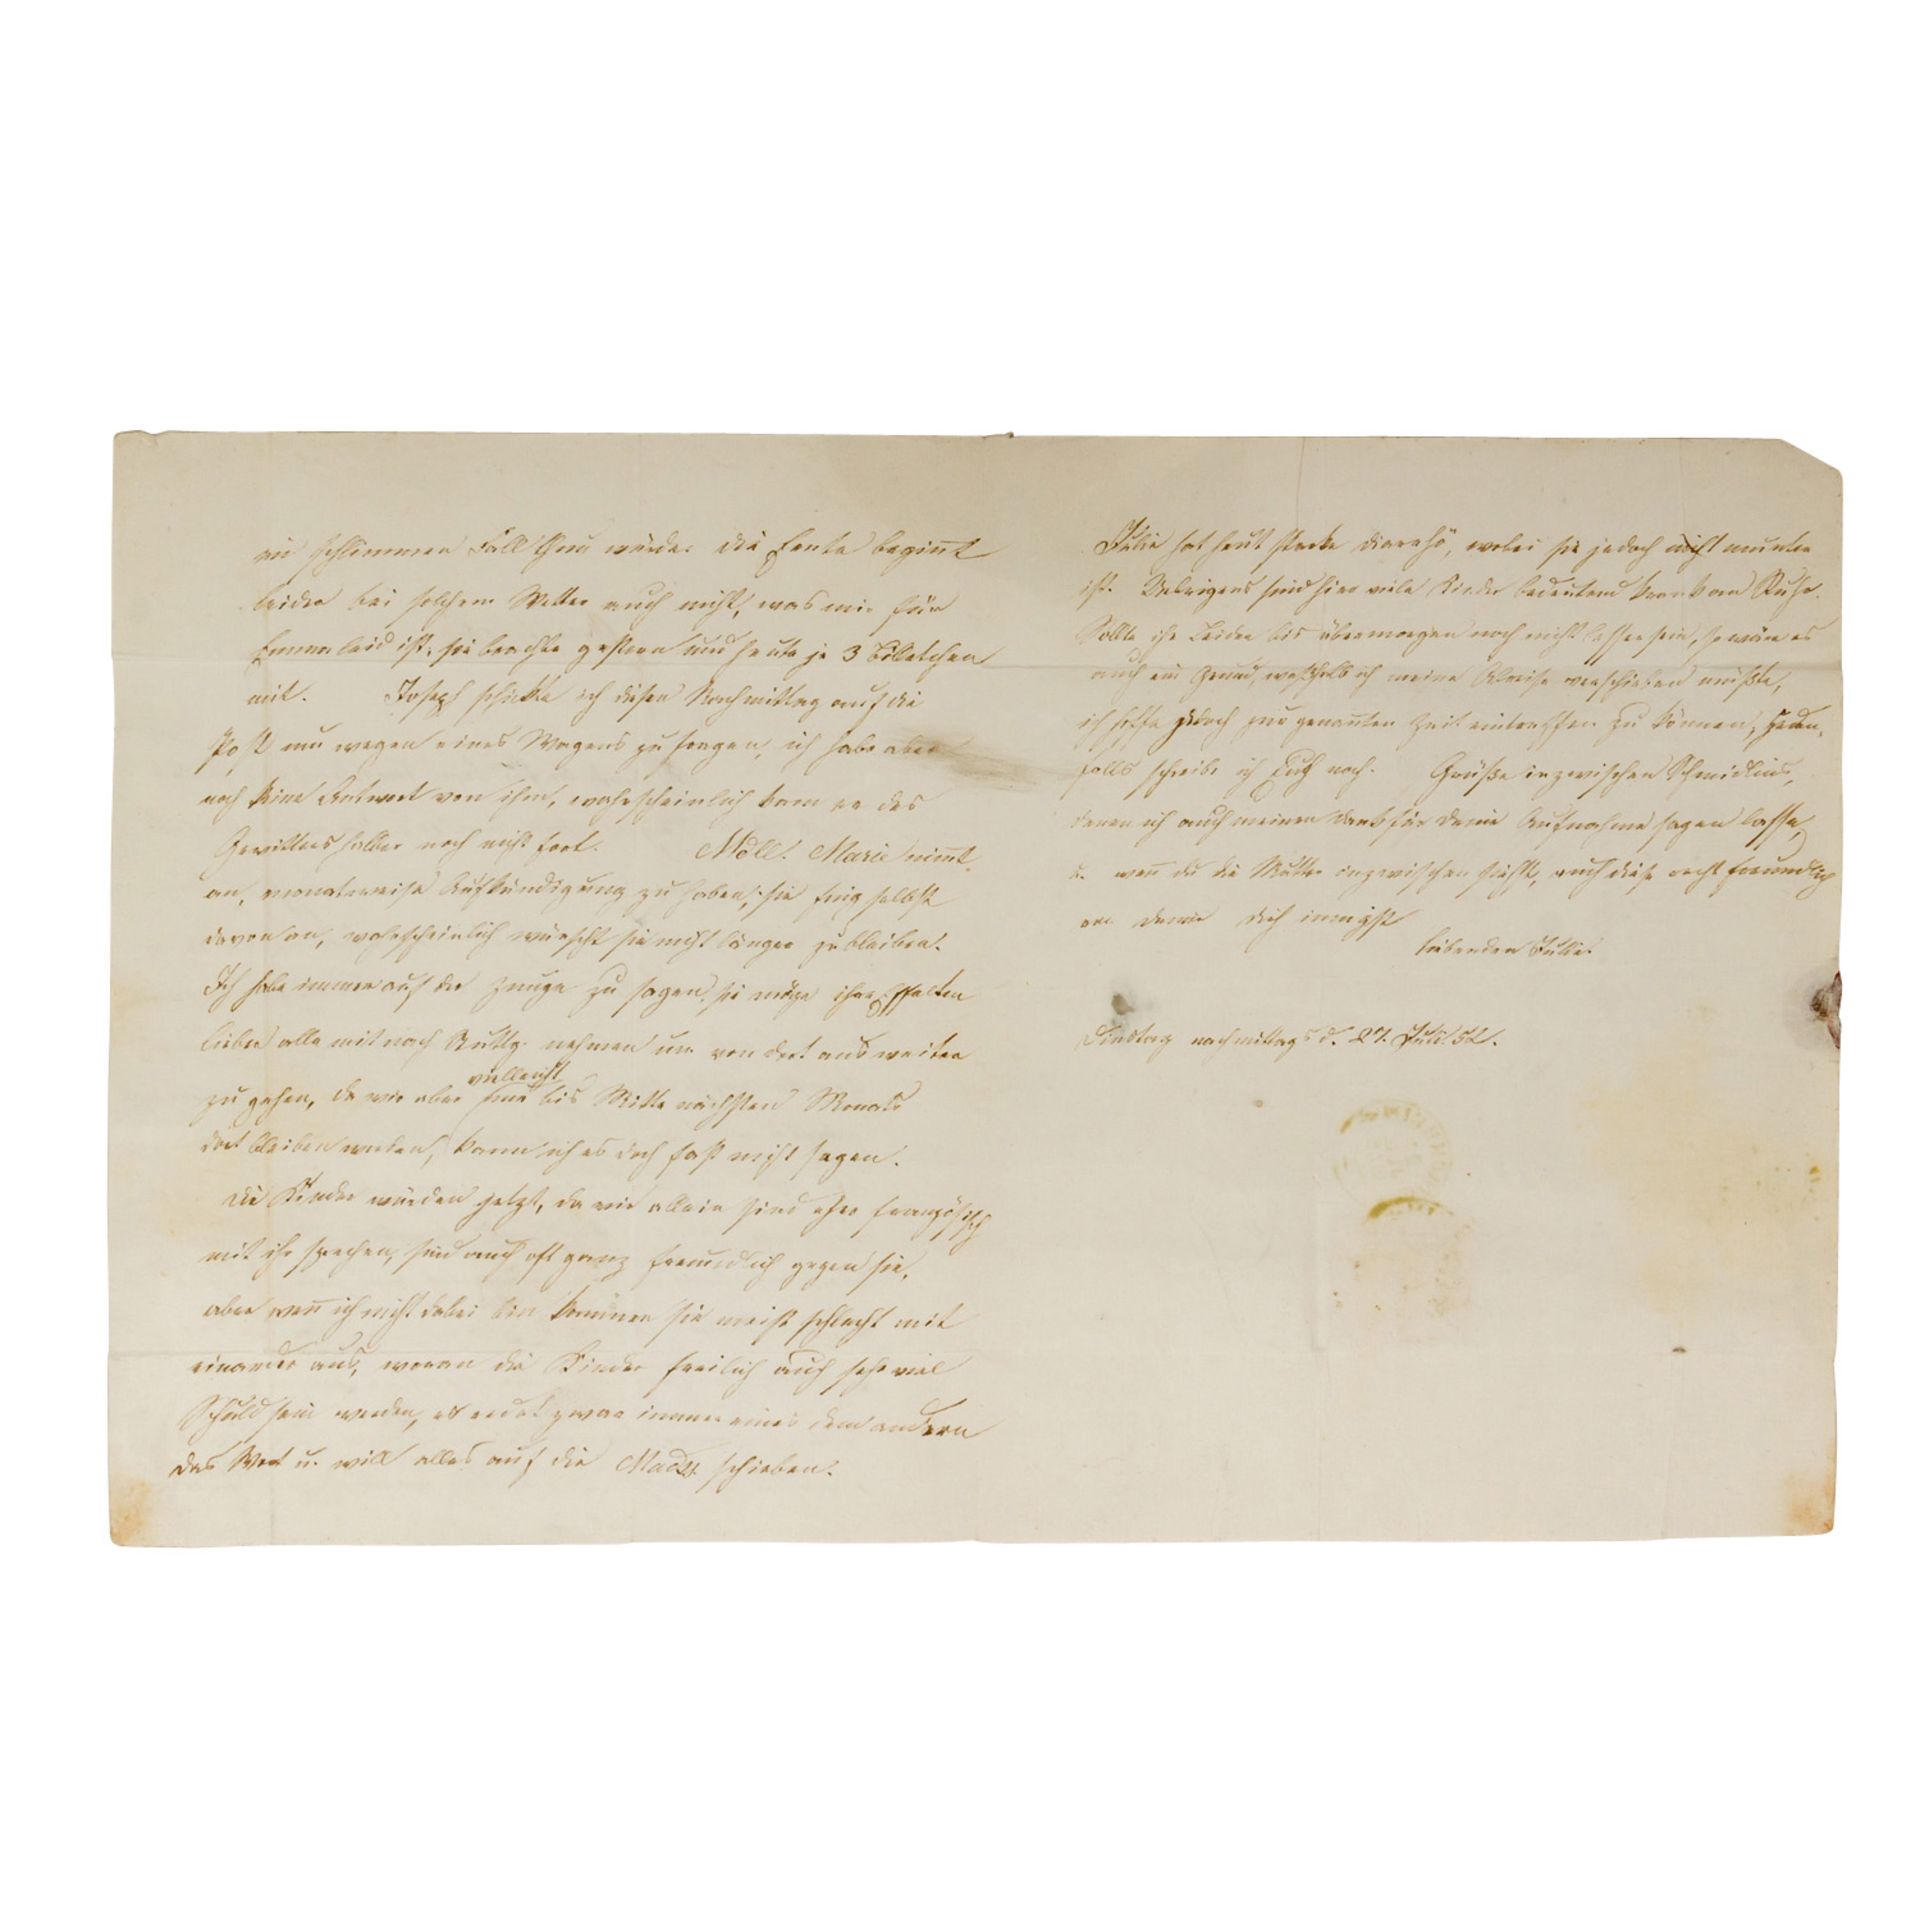 im schlimmen Fall thun würde. Die Ernte beginnt
leider bei solchem Wetter auch nicht, was mir für
Emma leid ist, sie brachte gestern und heute je 3 Billetchen
mit. Joseph schickte ich diesen Nachmittag auf die
Post um wegen eines Wagens zu fragen, ich habe aber
noch keine Antwort von ihm, wahrscheinlich kam er des
Gewitters halber noch nicht fort. Mdlle. Marie nimt
an, monatweise Aufkündigung zu haben, sie fing selbst
davon an, wahrscheinlich wünscht sie nicht länger zu bleiben.
Ich habe immer auf der Zunge zu sagen, sie möge ihre
lieber alle mit nach Stuttg. nehmen um von dort aus weiter
vielleicht
zu gehen, da wir aber bis Mitte nächsten Monats
dort bleiben werden, kann ich es doch fast nicht sagen.
Die Kinder würden jetzt, da wir allein sind eher französisch
mit ihr sprechen, sind auch oft ganz freundlich gegen sie,
aber wen ich nicht dabei bin kommen sie meist schlecht mit
einander aus, woran die Kinder freilich auch sehr viel
Schuld sein werden, es redet zwar immer eines dem andern
das Wort u. will alles auf die schieben.
Julie hat heut starke Diarrhö, wobei sie jedoch nicht munter
ist. Uebrigens sind hier viele Kinder bedeutend krank an Ruhr.
Sollte ihr Leiden bis übermorgen noch nicht besser sein, so wäre es
auch ein Grund, weßhalb ich meine Abreise verschieben müßte,
ich hoffe jedoch zur genanten Zeit eintreffen zu können, jeden-
falls schreibe ich Euch noch. Grüße inzwischen Schmidlins,
denen ich auch meinen Dank für deine Aufnahme sagen lasse,
u. wen du die Mutter inzwischen siehst, auch diese recht freundlich
von deiner dich innigst
liebenden Julie.
Dinstag nachmittags d. 27. Juli 52.